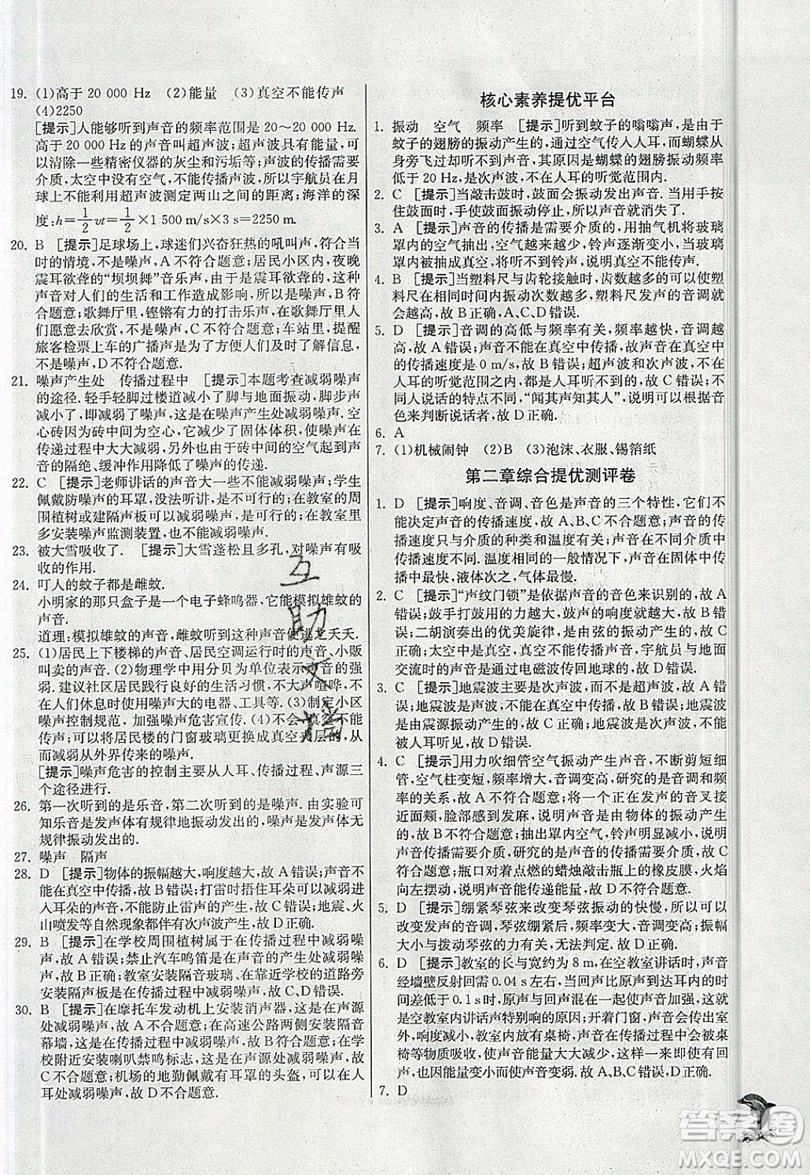 19. (1)高于 20 000 Hz (2)能量 (3)真空不能传声
(4)2250
[提示]人能够听到声音的频率范围是 20~20 000 Hz.
高于 20 000 Hz 的声音叫超声波;超声波具有能量,可
以清除一些精密仪器的灰尘和污垢等;声波的传播需
要介质,太空中没有空气不能传声,所以宇航员在月
球上不能用超声波测量两山之间的距离;海洋的深
度:h=1/2vt=1/2×1 500 m/s×3 s=2250 m.
20. B [提示]足球场上,球迷们兴奋狂热的吼叫声,符合当
时的情境,不是噪声,A 不符合题意;居民小区内,夜晚
震耳欲聋的“坝坝舞”音乐声,由于是震耳欲聋的,这种
声音对人们的生活和工作造成影响,所以是噪声,B 符
合题意;歌舞厅里,铿锵有力的打击乐声,在歌舞厅里人
们愿意去欣赏,不是噪声,C 不符合题意;车站里,提醒
旅客检票上车的广播声是人们需要听到的声音,所以
不是噪声,D 不符合题意.
21. 噪声产生处 传播过程中 [提示]本题考查减弱噪声
的途径.轻手轻脚过楼道减小了脚与地面振动,脚步声
减小了,即减弱了噪声,这是在噪声产生处减弱噪声;
砖块做成空心的,减少了固体体积,影响了噪声的传递,在
传递过程中减弱了噪声,由于砖中间的空气起到声
音的隔绝、缓冲作用减弱了噪声的传播.
22. C [提示]老师讲话的声音大一些不能减弱噪声;学生
佩戴防噪声的耳罩,影响学生听讲,不可行;在教室的周
围植树或建隔声板可以减弱噪声,可行;在教室里多安装
噪声监测装置,也不能减弱噪声.
23. 被大雪吸收了. [提示]大雪蓬松且多孔,对噪声有吸
收的作用.
24. 叮人的蚊子都是雌蚊.
小明家的那只盒子是一个电子蜂鸣器,它能模拟雄蚊的
声音.
道理:模拟雄蚊的声音,雌蚊听到这种声音便逃之夭夭.
25. (1)居民上下楼梯的声音、居民空调运行的声音、小贩
叫卖的声音. (2)物理学中用分贝为单位表示声音的强
弱.建议社区居民养成良好的生活习惯,不大声喧哗,不
在人们休息时间使用噪声大的电器、工具等. (3)制定小区
噪声控制规范.加强噪声危害宣传. (4)真空不能
传声,可将居民楼的门窗玻璃更换成真空夹层的,从
而减弱从外界传来的噪声.
[提示]噪声危害的控制主要从人耳、传播过程、声源三
个途径进行.
26. 第一次听到的是乐音,第二次听到的是噪声.由实验可
知乐音是发声体有规律地振动发出的,噪声是发声体无
规律振动发出的.
27. 噪声 隔声
28. D [提示]物体的振幅越大,响度越大,故 A 错误;声音不
能在真空中传播,故 B 错误;打雷时捂住耳朵可以减弱进
入人耳朵的声音,不能防止雷声的产生,故 C 错误;地震、火
山喷发等自然现象都伴有次声波产生,故 D 正确.
29. B [提示]在学校周围植树属于在传播过程中减弱噪
声,故 A 错误;禁止汽车鸣笛是在声源处减弱噪声,故 B
正确;教室安装隔音玻璃、和靠近学校的道路旁安装隔声
板是在传播过程中减弱噪声,故 C、D 错误.
30. B [提示]在摩托车发动机上安装消声器,这是在声
源处减弱噪声,A 不符合题意;在高速公路两侧安装隔音
幕墙,这是在传播过程中减弱噪声,B 符合题意;在学
校附近安装禁鸣喇叭标志,这是在声源处减弱噪声,C 不
符合题意;机场的地勤佩戴有耳罩的头盔,是在人耳
处减弱噪声,D 不符合题意.
核心素养提优平台
1. 振动 空气 频率 [提示]听到蚊子的嗡嗡声,是由于
蚊子的翅膀的振动产生的,通过空气传入人耳,而蝴蝶从
身旁飞过时听不到声音,其原因是蝴蝶的翅膀振动频率
低于 20 Hz,不在人耳的听觉范围内.
2. C [提示]当敲击鼓时,鼓面会振动发出声音.当用手按
住鼓面时,鼓面振动停止,所以声音消失了.
3. A [提示]声音的传播是需要介质的,用抽气机将玻璃
罩内的空气抽出,空气越来越少,铃声逐渐变小,当玻璃
罩内被抽成真空,将听不到铃声.
4. B [提示]当塑料尺与齿轮接触时,齿数越多的齿轮,塑
料尺在相同时间内振动次数越多,塑料尺发声的音调就
会越高,故 B 符合题意,A、C、D 错误.
5. D [提示]音调的高低与频率有关,频率越快,音调越高,
故 A 错误;声音不能在真空中传播,故声音在真空中的
速度是 0 m/s,故 B 错误;超声波和次声波,不在
人耳的听觉范围内,不能引起人的听觉,故 C 错误;不
同人说话的特点不同,“闻其声知其人”,说明可以根据音
色来判断说话者,故 D 正确.
6. A
7. (1)机械闹钟 (2)B (3)泡沫、衣服、锡箔纸
第二章综合提优测评卷
1. D [提示]响度、音调、音色是声音的三个特性,它们不
能决定声音的传播速度,故 A、B、C 不合题意;声音的传
播速度只与介质的种类和温度有关,介质不同,声音的传
播速度不同.温度相同的一般情况下,声音在固体中传
播最快,液体次之,气体最慢.
2. C [提示]“声纹门锁”是依据声音的音色来识别的,故
A 错误;鼓手打鼓用的力越大,鼓面的振幅越大,响度越大,故 B 错
误;二胡演奏出的优美旋律,是由弦的振动产生的,故 C
正确;太空中没有空气,不能传声,宇航员与地面
交流时的声音是通过电磁波传回地球的,故 D 错误.
3. C [提示]地震波主要是次声波,不是超声波,故 A 错误;地震波
是由震源振动产生的,故 B 错误;地震波是次声波,不能
被人耳听见,故 D 错误.
4. C [提示]用力吹细管空气振动产生声音,不断剪短细
管,空气柱变短,振动频率变高,音调变高,研究的是声音
的音调,故 A 不符合题意;将正在发声的音叉接
近面颊,脸部感到发麻,说明声音是由物体的振动产生
的,故 B 不符合题意;抽出罩内空气,铃声明显减小,说明
声音的传播需要介质,研究的是声音的传播需要介质,故
C 符合题意;瓶口对着点燃的蜡烛敲击瓶后的橡皮膜,火焰
向左摆动,说明声音能传递能量,故 D 不符合题意.
5. D [提示]绷紧琴弦来改变琴弦振动的快慢,所以可以改
变音调;增大拨动琴弦的力,琴弦的振幅变大,响度变大;
音调高低与拨动琴弦的力大小无关,优美动听与音色有关.
6. D [提示]教室的长与宽约为 8 m,在空教室讲话时,声音
经墙壁反射后形成回声,原声与回声到达耳内的时间
差小于 0.1 s 时,原声与回声混在一起,原声加强,这就
是空教室内讲话声特别响的原因.教室内没有桌椅和学
生时,对声音的吸收很少,而室内放有桌椅,声音会被桌
椅吸收一部分,能量大大减少,所以声音就没有空教室
那么响.
7. D
互助文摘
答案圈
MXQE.COM